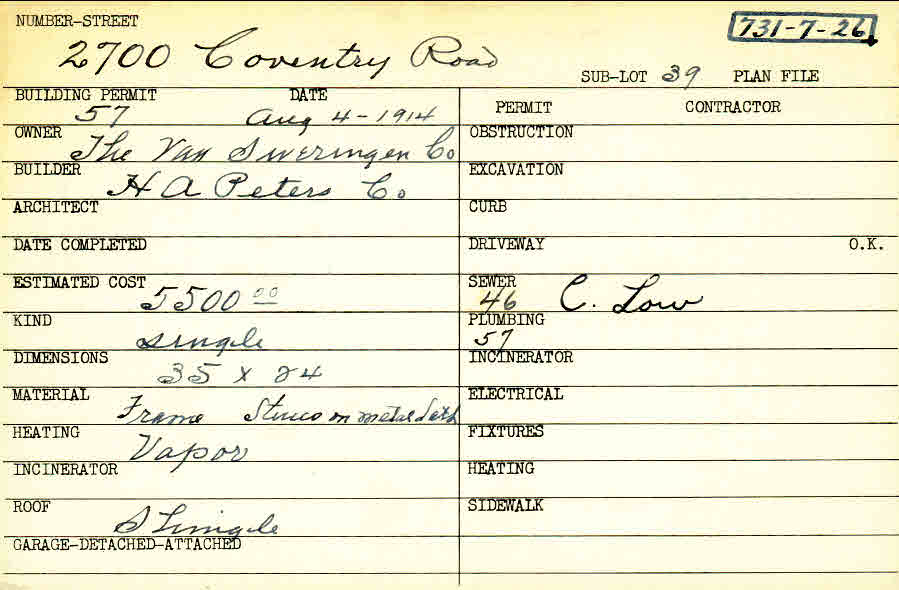 NUMBER-STREET
731-7-26
2700 Coventry Road
SUB-LOT 39 PLAN FILE
BUILDING PERMIT DATE
57 Aug 4-1914
PERMIT CONTRACTOR
OWNER The Van Sweringen Co
OBSTRUCTION
BUILDER H A Peters Co
EXCAVATION
ARCHITECT
CURB
DATE COMPLETED
DRIVEWAY O.K.
ESTIMATED COST 5500 00
SEWER 46 C. Low
KIND single
PLUMBING 57
DIMENSIONS 35 x 24
INCINERATOR
MATERIAL Frame Stucco on metal Lath
ELECTRICAL
HEATING Vapor
FIXTURES
INCINERATOR
HEATING
ROOF Shingle
SIDEWALK
GARAGE-DETACHED-ATTACHED